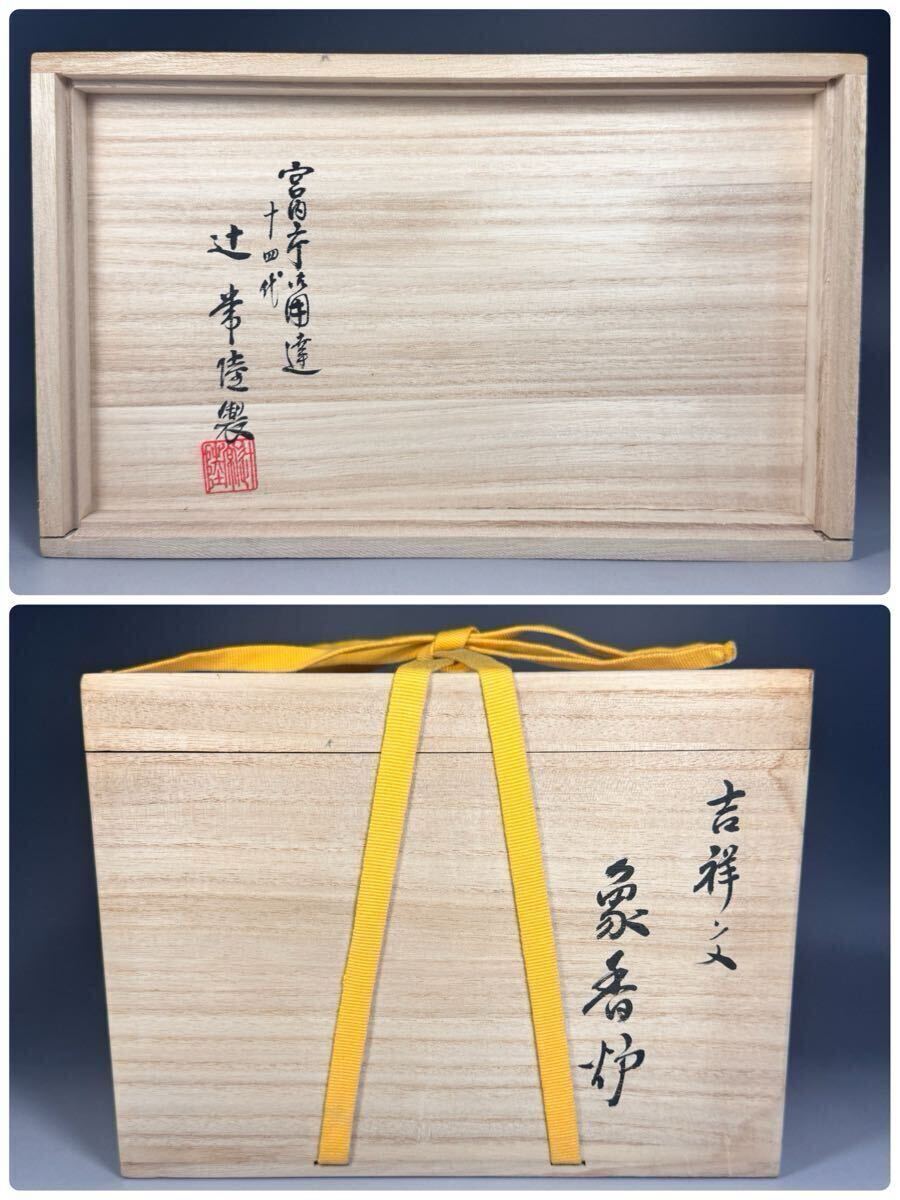 宮内庁御用達
十四代
辻常陸製
辻常陸
吉祥文
象香炉